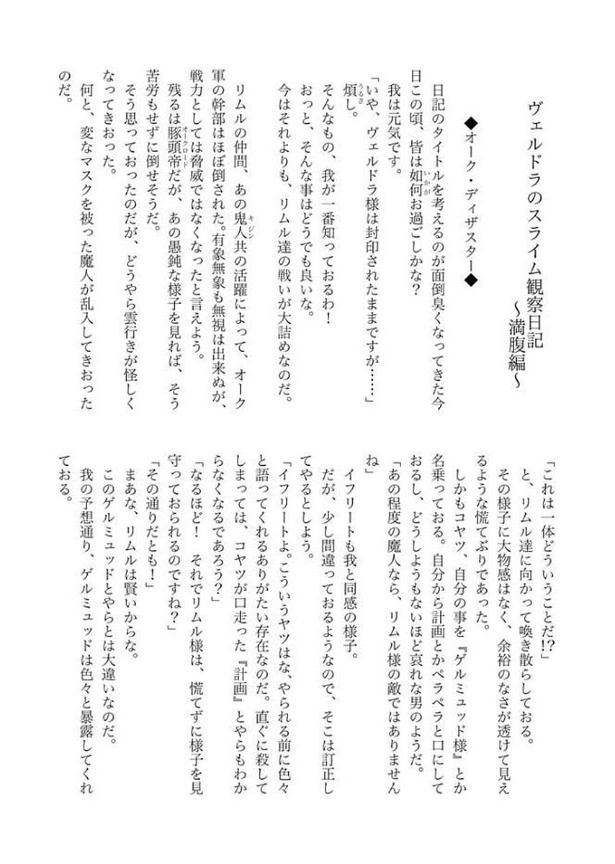 ヴェルドラのスライム観察日記
～満腹編～
◆オーク・ディザスター◆
日記のタイトルを考えるのが面倒臭くなってきた今
日この頃、皆は如何お過ごしかな？
いかが
我は元気です。
「いや、ヴェルドラ様は封印されたままですが……」
煩し。
うるさ
そんなもの、我が一番知っておるわ！
おっと、そんな事はどうでも良いな。
今はそれよりも、リムル達の戦いが大詰めなのだ。
リムルの仲間、あの鬼人共の活躍によって、オーク
キジン
軍の幹部はほぼ倒された。有象無象も無視は出来ぬが、
戦力としては脅威ではなくなったと言えよう。
残るは豚頭帝だが、あの愚鈍な様子を見れば、そう
オークロード
苦労もせずに倒せそうだ。
そう思っておったのだが、どうやら雲行きが怪しく
なってきおった。
何と、変なマスクを被った魔人が乱入してきおった
のだ。
「これは一体どういうことだ!?」
と、リムル達に向かって喚き散らしておる。
その様子に大物感はなく、余裕のなさが透けて見え
るような慌てぶりであった。
しかもコヤツ、自分の事を『ゲルミュッド様』とか
名乗っておる。自分から計画とかペラペラと口にして
おるし、どうしようもないほど哀れな男のようだ。
「あの程度の魔人なら、リムル様の敵ではありません
ね」
イフリートも我と同感の様子。
だが、少し間違っておるようなので、そこは訂正し
てやるとしよう。
「イフリートよ。こういうヤツはな、やられる前に色々
と語ってくれるありがたい存在なのだ。直ぐに殺して
しまっては、コヤツが口走った『計画』とやらもわか
らなくなるであろう？」
「なるほど！　それでリムル様は、慌てずに様子を見
守っておられるのですね？」
「その通りだとも！」
まあな、リムルは賢いからな。
このゲルミュッドとやらとは大違いなのだ。
我の予想通り、ゲルミュッドは色々と暴露してくれ
ておる。